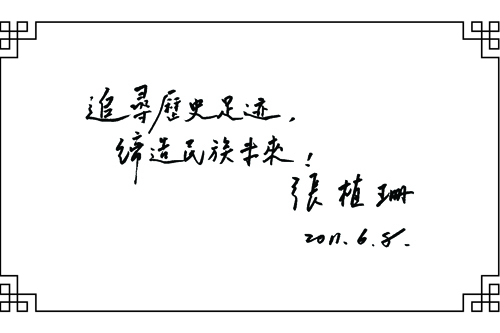 追尋歷史足迹，
締造民族未來！
張植珊
2011.6.8.